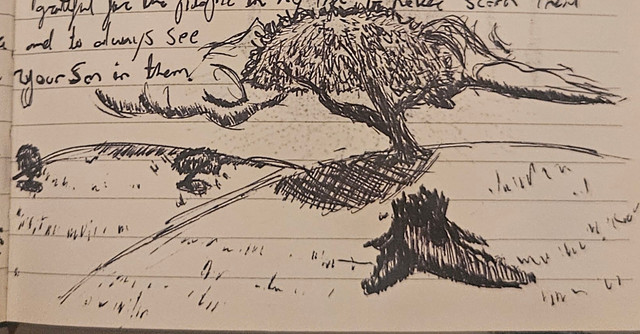 grateful for the people in my
and to always see
your Son in them.